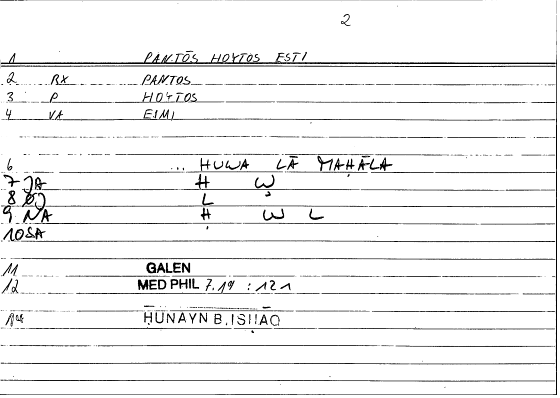 2
1 PANTŌS HOYTOS ESTI
2 RX PANTOS
3 P HOYTOS
4 VA EIMI
6 ... HUWA LĀ MAḤĀLA
7 JA H W
8 ØJ L
9 NA Ḥ W L
10 SA
11 GALEN
12 MED PHIL 7.19 : 121
ḤUNAYN B. ISḤĀQ